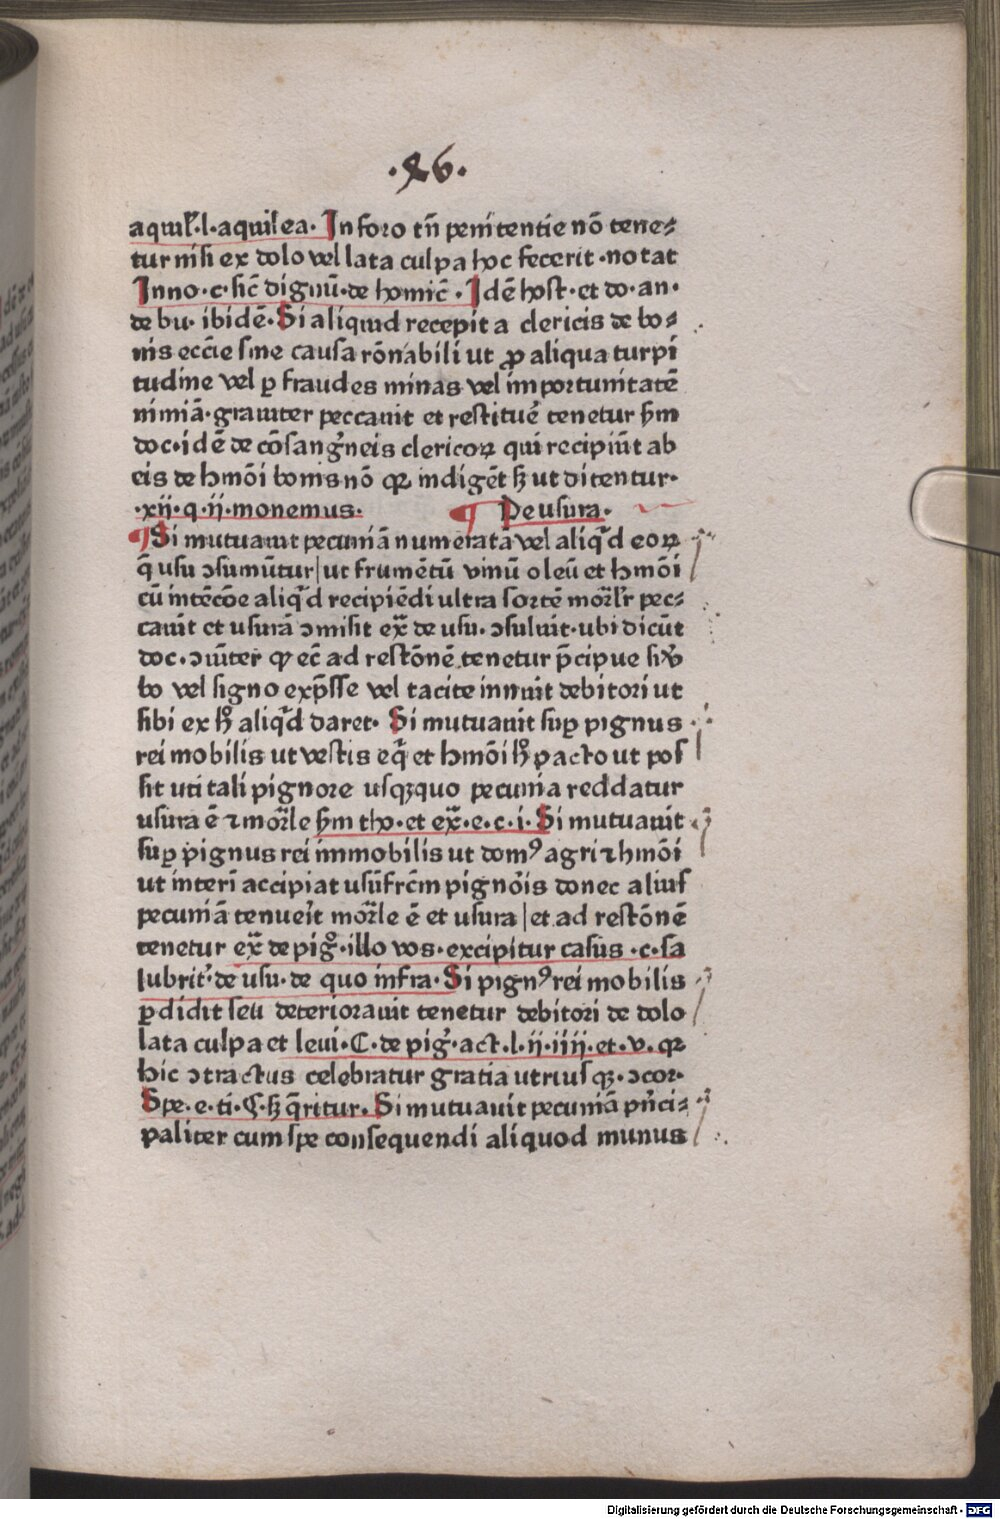 ·x6·
aquil̃·l·aquilea· In foro tñ penitentie nō tene⸗
tur nisi ex dolo vel lata culpa hoc fecerit ·notat
Inno·c·sic̄ dignū·de homic̄ · Idē host·et do·an·
de bu· ibidē· Si aliquid recepit a clericis de bo⸗
nis eccīe sine causa rōnabili ut ꝓ aliqua turpi
tudine vel ꝑ fraudes minas vel importunitatē
nimiā·grauiter peccauit et restituẽ tenetur ẜm
doc·idē de cōsang̃neis clericoꝝ qui recipiūt ab
eis de hmōi bonis nō ꝙ indigēt ꝫ ut ditentur·
·xij·q·ij·monemus· ¶ De usura·
¶ Si mutuauit pecuniā numeratā vel aliq̄d eoꝝ
q̄ usu ↄsumūtur|ut frumētū vinū oleū et hmōi
cū intēcōe aliq̄d recipiēdi ultra sortē morl̃r pec⸗
cauit et usurā ↄmisit ex̃ de usu· ↄsuluit·ubi dicūt
doc·ↄiūter ꝙ ec̄ ad restōnē tenetur p̄cipue si v̾
bo vel signo exp̄sse vel tacite innuit debitori ut
sibi ex h̾ aliq̄d daret· Si mutuauit suꝑ pignus
rei mobilis ut vestis eq̄ et hmōi h̾ pacto ut pos
sit uti tali pignore usqꝫquo pecunia reddatur
usura ē ⁊ morl̃e ẜm tho·et ex̃·e·c·i· Si mutuauit
suꝑ pignus rei immobilis ut domꝰ agri ⁊ hmōi
ut interī accipiat usūfrc̄m pignōis donec alius
pecuniā tenue͛it morl̃e ē et usura|et ad restōnē
tenetur ex̃ de pig̃·illo vos·excipitur casus ·c·sa
lubrit̾·de usu·de quo infra· Si pignꝰ rei mobilis
ꝑdidit seu deteriorauit tenetur debitori de dolo
lata culpa et leui·C·de pig̃·act·l·ij·iiij·et·v·ꝙ
hic ↄtractus celebratur gratia utriusqꝫ·ↄcor·
Spe·e·ti·§·ꝫ q̄ritur· Si mutuauit pecuniā pn̄ci⸗
paliter cum spe consequendi aliquod munus
Digitalisierung gefördert durch die Deutsche Forschungsgemeinschaft - DFG